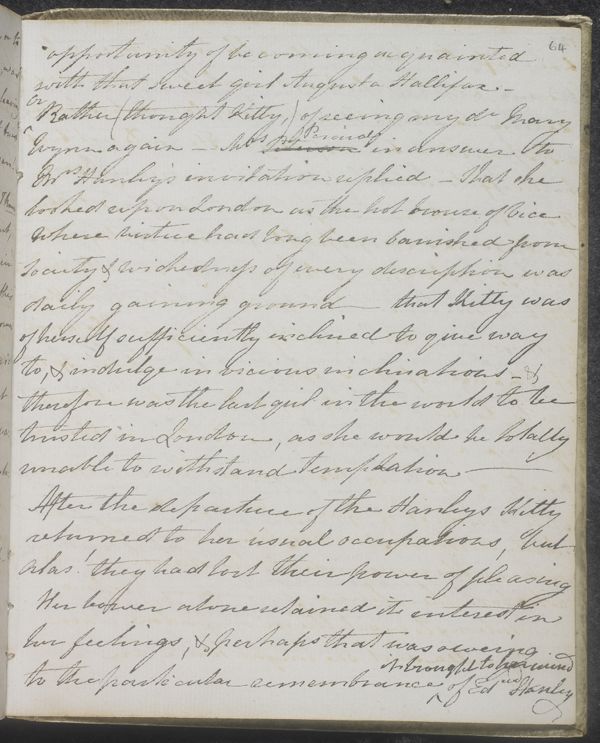 64
opportunity of becoming acquainted
with that sweet girl Augusta Hallifax -
or Rather (thought Kitty,) of seeing my dr Mary
Wynne again - Mrs Percival in answer to
Mrs Stanley's invitation replied - That she
looked upon London as the hot house of Vice
where virtue had long been banished from
Society & wickedness of every description was
daily gaining ground - that Kitty was
of herself sufficiently inclined to give way
to, & indulge in vicious inclinations - &
therefore was the last girl in the world to be
trusted in London, as she would be totally
unable to withstand temptation -
After the departure of the Stanleys Kitty
returned to her usual occupations, but
alas! they had lost their power of pleasing
Her bower alone retained its interest in
her feelings, & perhaps that was oweing
to the particular remembrance it brought to her mind of Edwd Stanley